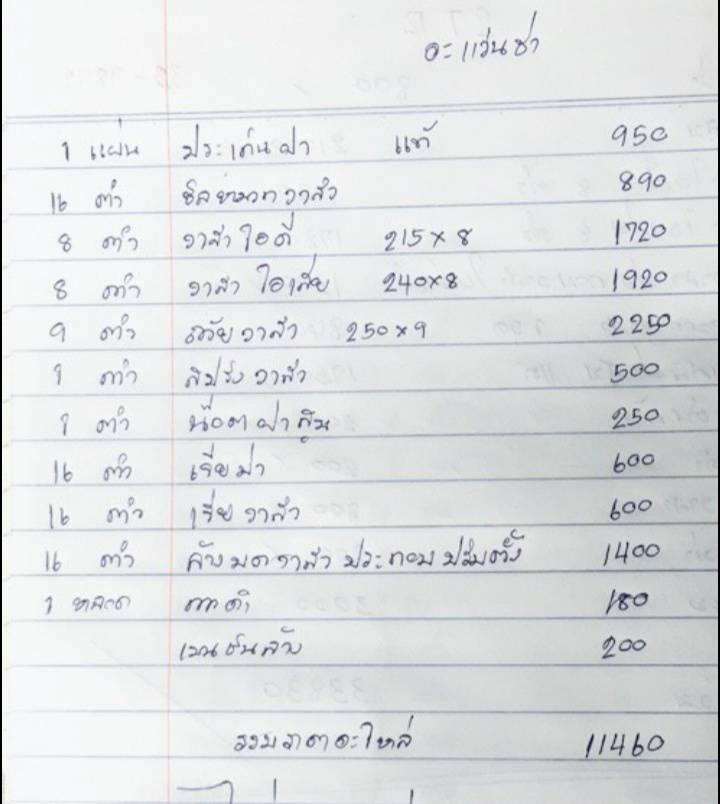 อะแว่นซ่า
1 แผ่น ประเก็นฝา แท้ 950
16 ตัว ซีลหมวกวาล์ว 890
8 ตัว วาล์วไอดี 215 x 8 1720
8 ตัว วาล์วไอเสีย 240x8 1920
9 ตัว วาล์ว 250x9 2250
1 ตัว สปริงวาล์ว 500
1 ตัว น๊อตฝาสูบ 250
16 ตัว เจียบ่า 600
16 ตัว เจียวาล์ว 600
16 ตัว ล้างบดวาล์วประกอบปรับตั้ง 1400
1 หลอด กาวดำ 180
เบนซินล้าง 200
รวมราคาอะไหล่ 11460